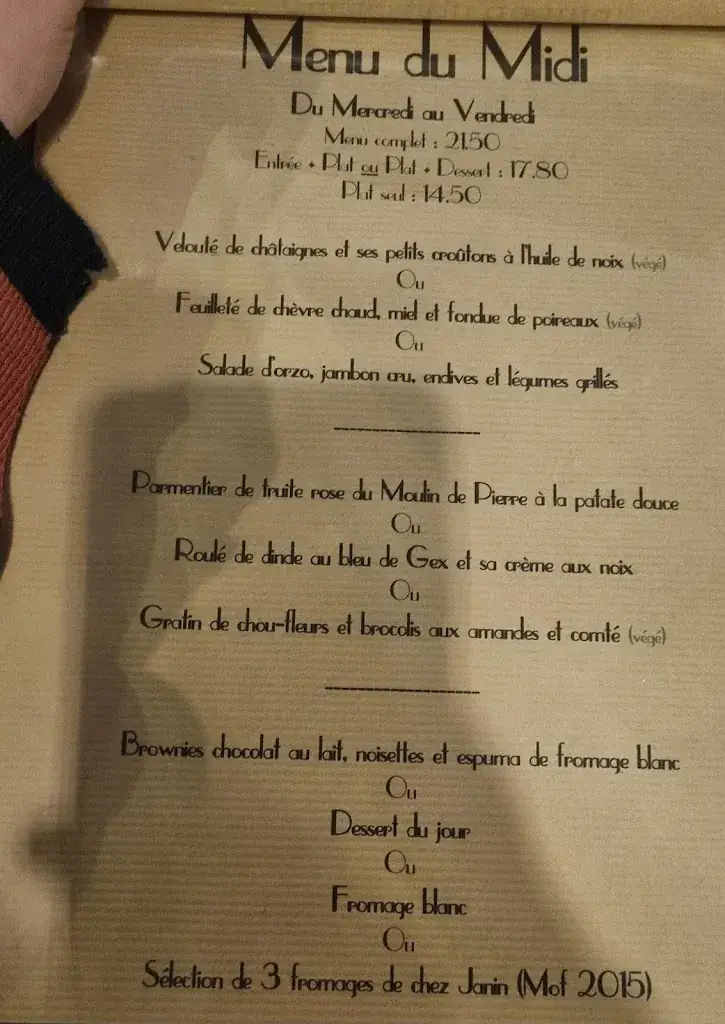 Menu du Midi
Du Mercredi au Vendredi
Menu complet : 21.50
Entrée + Plat ou Plat + Dessert : 17.80
Plat seul : 14.50
Velouté de châtaignes et ses petits croûtons à l'huile de noix (végé)
Ou
Feuilleté de chèvre chaud, miel et fondue de poireaux (végé)
Ou
Salade d'orzo, jambon cru, endives et légumes grillés
--------------------
Parmentier de truite rose du Moulin de Pierre à la patate douce
Ou
Roulé de dinde au bleu de Gex et sa crème aux noix
Ou
Gratin de chou-fleurs et brocolis aux amandes et comté (végé)
--------------------
Brownies chocolat au lait, noisettes et espuma de fromage blanc
Ou
Dessert du jour
Ou
Fromage blanc
Ou
Sélection de 3 fromages de chez Janin (Mof 2015)